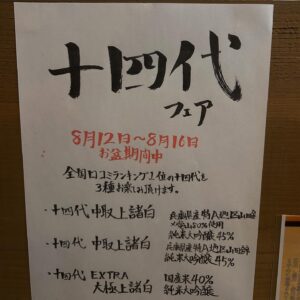 十四代
フェア
8月12日〜8月16日
お盆期間中
全国口コミランキング1位の十四代を
3種お楽しみ頂けます。
・十四代 中取上諸白
兵庫県産特A地区山田錦
純米大吟醸 35%
・十四代 中取上諸白
兵庫県産特A地区山田錦
純米大吟醸 45%
・十四代 EXTRA
大極上諸白
国産米40%
純米大吟醸